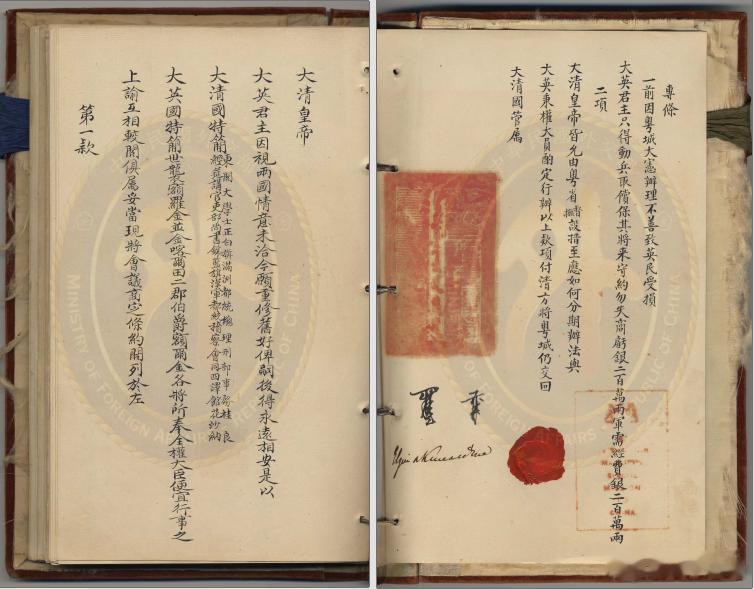 大清皇帝
大英君主因視兩國情意未洽今願重修舊好俾嗣後得永遠相安是以
大清國特簡
東閣大學士正白旗滿洲都統總理刑部事務桂良
經筵講官吏部尚書鑲藍旗漢軍都統稽察會同四譯館花沙納
大英國特簡世襲額羅金並金喀爾田二郡伯爵額爾金各將所奉全權大臣便宜行事之
上諭互相較閱俱屬妥當現將會議商定條約開列於左
第一款
專條
一前因粵城大憲辦理不善致英民受損
大英君主只得動兵取償保其將來守約勿失商虧銀二百萬兩軍需經費銀二百萬兩
二項
大清皇帝皆允由粵省督撫設措至應如何分期辦法與
大英秉權大員酌定行辦以上款項付清方將粵城仍交回
大清國管屬
Elgin & Kincardine